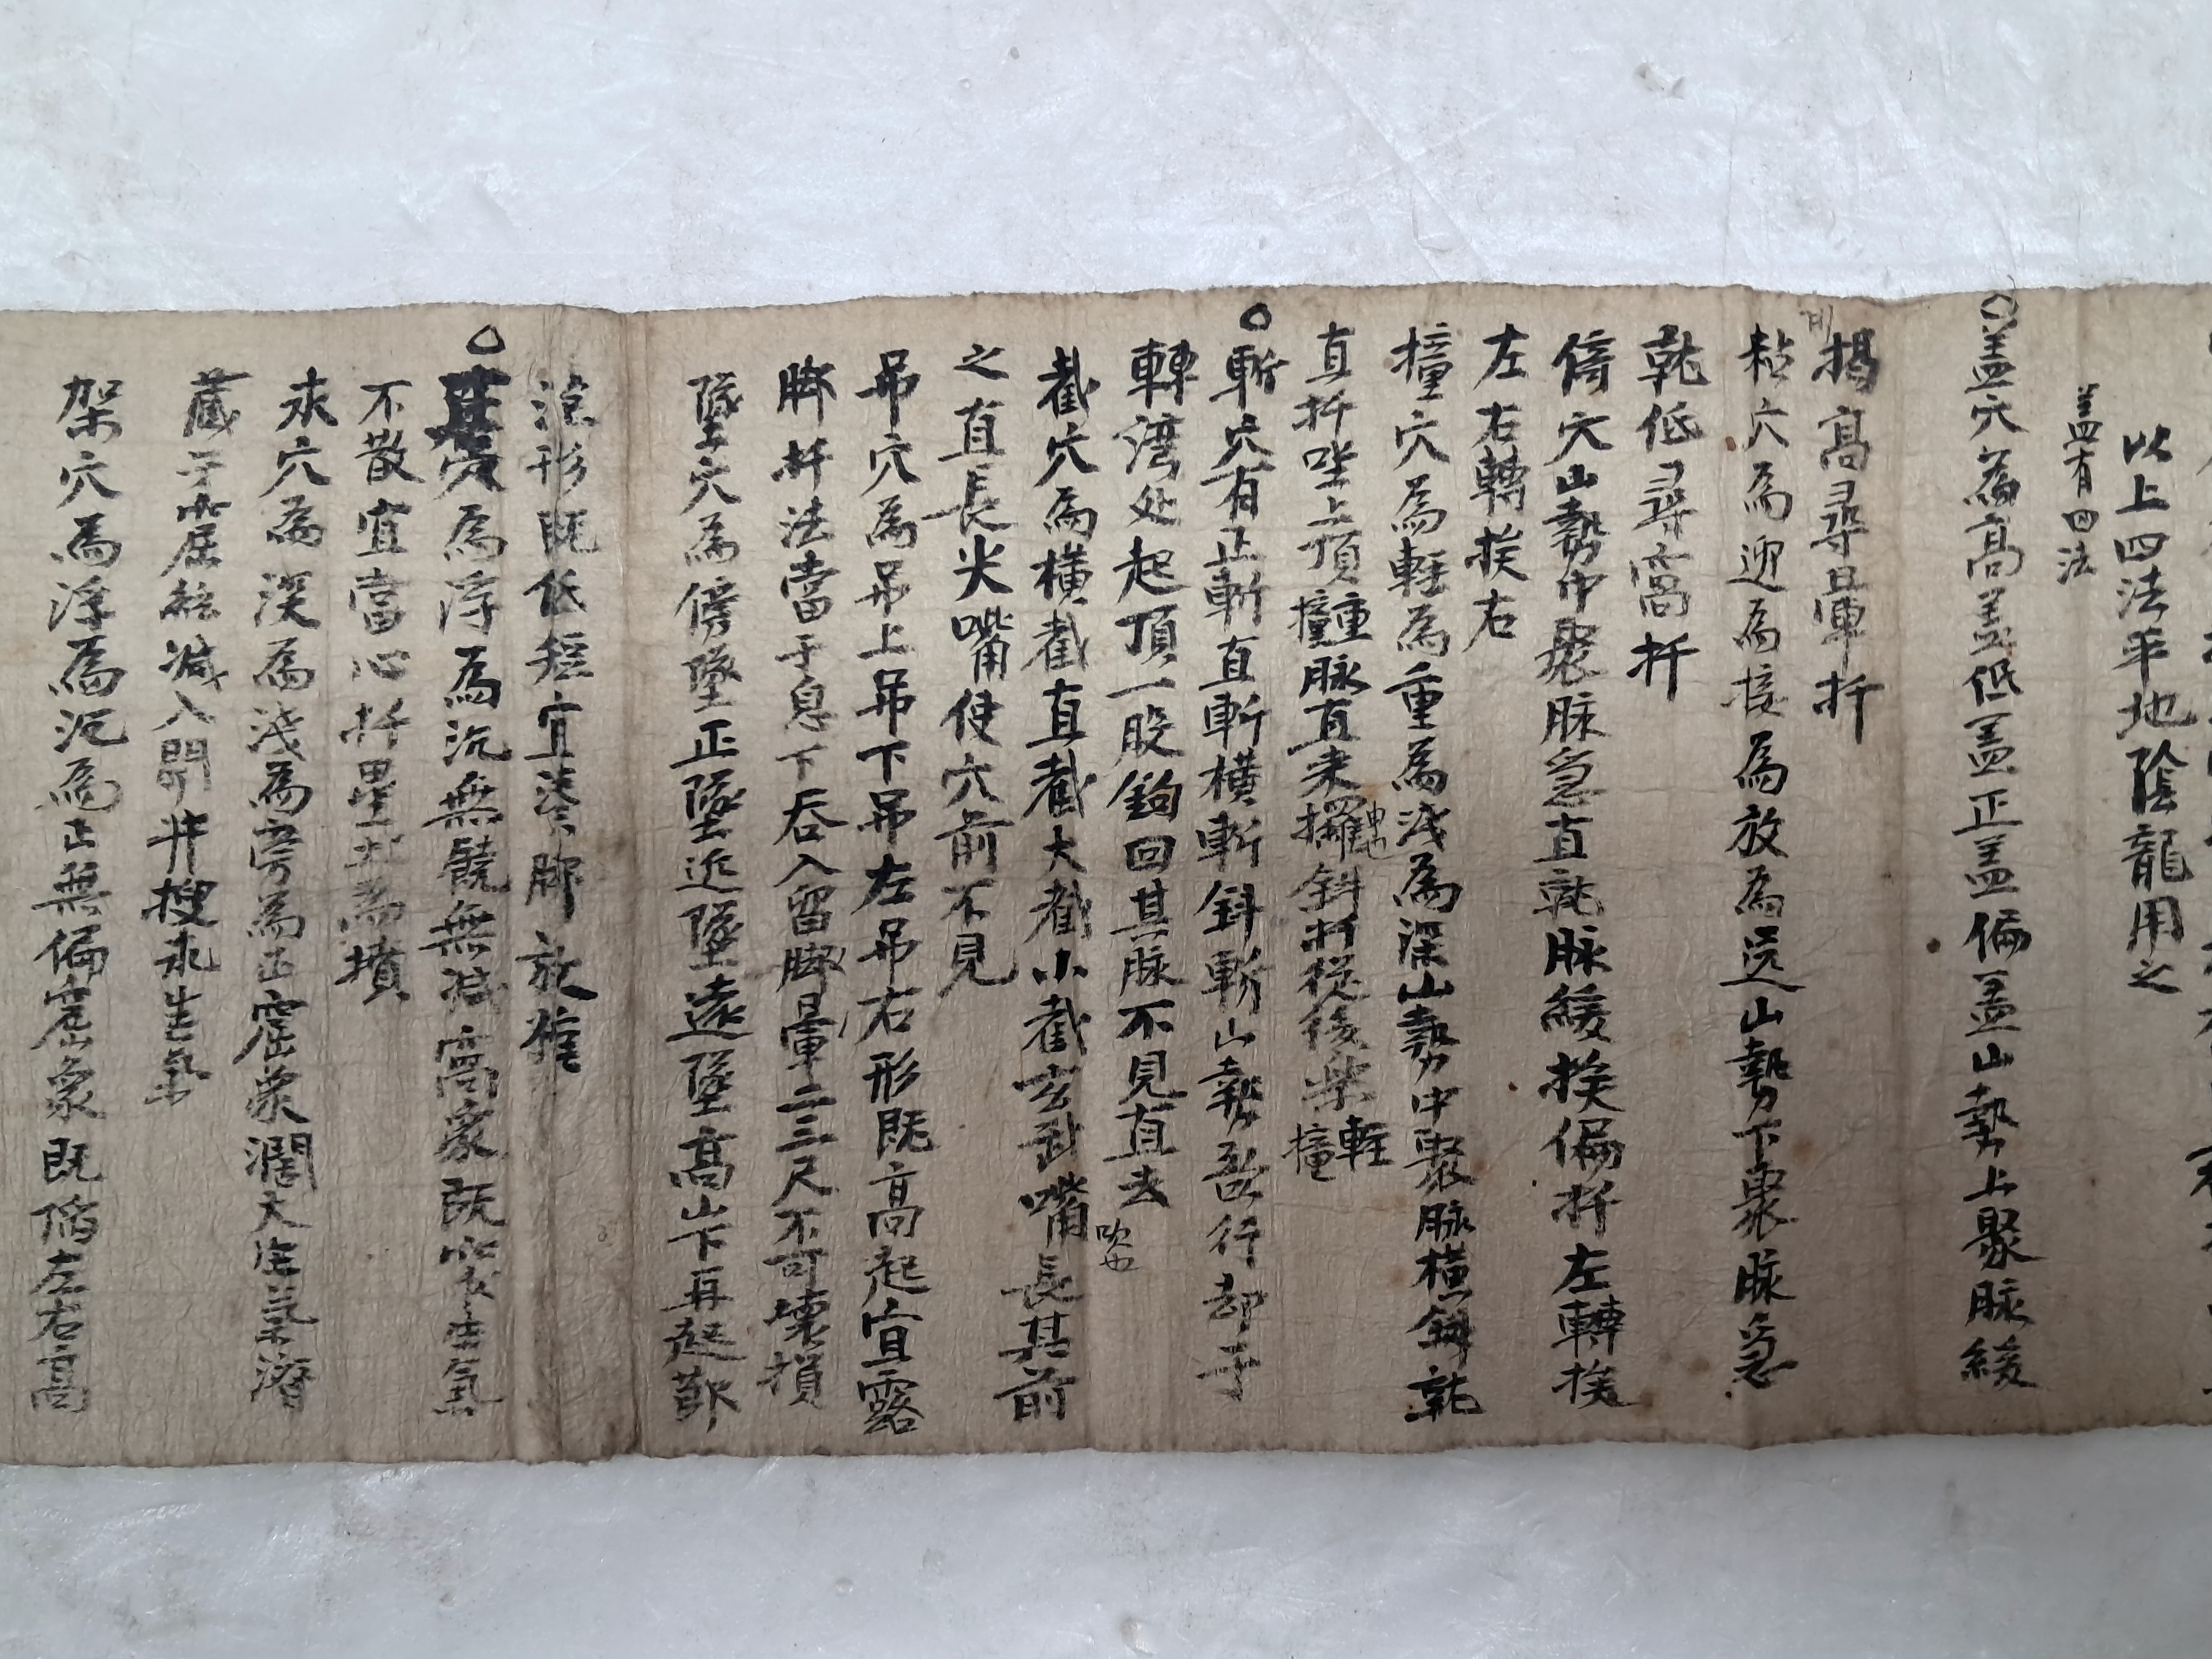 以上四法平地陰龍用之
蓋有四法
蓋穴為高蓋低蓋正蓋偏蓋山勢上聚脉緩
揭高尋暈扦
粘穴為迎為接為放為送山勢下聚脉急
就低尋窩扦
倚穴山勢中聚脉急直就脉緩挨偏扦左轉挨
左右轉挨右
撞穴為輕為重為浅為深山勢中聚脉橫斜就
直扦坐上頂撞重脉直来斜扦從後輕撞
斬穴有正斬直斬橫斬斜斬山勢行却于
轉湾处起頂一股鉤回其脉不見直去
吹也
截穴為橫截直截大截小截玄武嘴長其前
之直長尖嘴使穴前不見
吊穴為吊上吊下吊左吊右形既高起宜露
脚扦法當于息下吞入留脚暈二三尺不可壞損
墜穴為傍墜正墜近墜遠墜高山下再起節
形既低短宜湊脚放
穴為浮為沉無饒無減窩象既生氣
不散宜當心扦為墳
求穴為深為浅為旁為正窟象濶大生氣
藏于減入開井搜求生氣
架穴為浮為沉為正無偏窟象既陷左右高